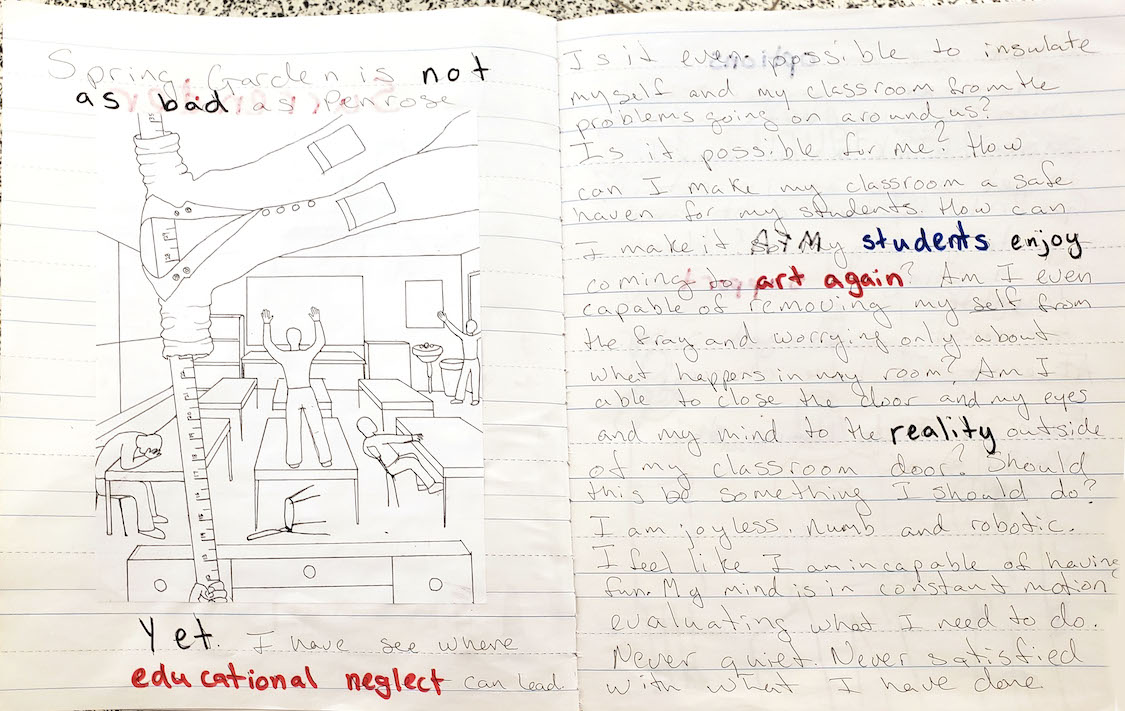 Spring Garden is not
as bad as Penrose
Yet. I have see where
educational neglect can lead.
Is it even possible to insulate
myself and my classroom from the
problems going on around us?
Is it possible for me? How
can I make my classroom a safe
haven for my students. How can
I make it my students enjoy
coming to art again? Am I even
capable of removing my self from
the fray and worrying only about
what happens in my room? Am I
able to close the door and my eyes
and my mind to the reality outside
of my classroom door? Should
this be something I should do?
I am joyless. Numb and robotic.
I feel like I am incapable of having
fun. My mind is in constant motion
evaluating what I need to do.
Never quiet. Never satisfied
with what I have done